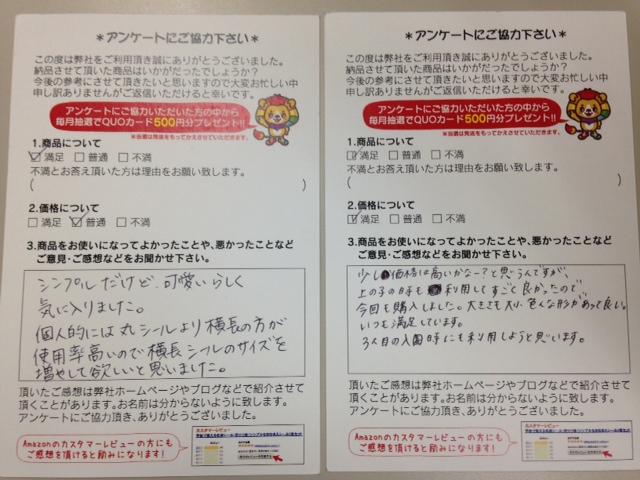 ＊アンケートにご協力下さい＊
この度は弊社をご利用頂き誠にありがとうございました。
納品させて頂いた商品はいかがだったでしょうか？
今後の参考にさせて頂きたいと思いますので大変お忙しい中
申し訳ありませんがご返信いただけると幸いです。
アンケートにご協力いただいた方の中から
毎月抽選でQUOカード500円分プレゼント!!
※当選は発送をもってかえさせていただきます。
1.商品について
☑満足 □普通 □不満
不満とお答え頂いた方は理由をお願い致します。
( )
2.価格について
□満足 ☑普通 □不満
3.商品をお使いになってよかったことや、悪かったことなど
ご意見・ご感想などをお聞かせ下さい。
シンプルだけど、可愛いらしく
気に入りました。
個人的には丸シールより横長の方が
使用率高いので横長シールのサイズを
増やして欲しいと思いました。
頂いたご感想は弊社ホームページやブログなどで紹介させて
頂くことがあります。お名前は分からないように致します。
アンケートにご協力頂き、ありがとうございました。
Amazonのカスタマーレビューの方にも
ご感想を頂けると励みになります！
カスタマーレビュー
＊アンケートにご協力下さい＊
この度は弊社をご利用頂き誠にありがとうございました。
納品させて頂いた商品はいかがだったでしょうか？
今後の参考にさせて頂きたいと思いますので大変お忙しい中
申し訳ありませんがご返信いただけると幸いです。
アンケートにご協力いただいた方の中から
毎月抽選でQUOカード500円分プレゼント!!
※当選は発送をもってかえさせていただきます。
1.商品について
☑満足 □普通 □不満
不満とお答え頂いた方は理由をお願い致します。
( )
2.価格について
☑満足 □普通 □不満
3.商品をお使いになってよかったことや、悪かったことなど
ご意見・ご感想などをお聞かせ下さい。
少し価格は高いかな〜？と思うんですが、
上の子の時も利用してすごく良かったので
今回も購入しました。大きさも大小、色んな形があって良い。
いつも満足しています。
3人目の入園時にも利用しようと思います。
頂いたご感想は弊社ホームページやブログなどで紹介させて
頂くことがあります。お名前は分からないように致します。
アンケートにご協力頂き、ありがとうございました。
Amazonのカスタマーレビューの方にも
ご感想を頂けると励みになります！
カスタマーレビュー